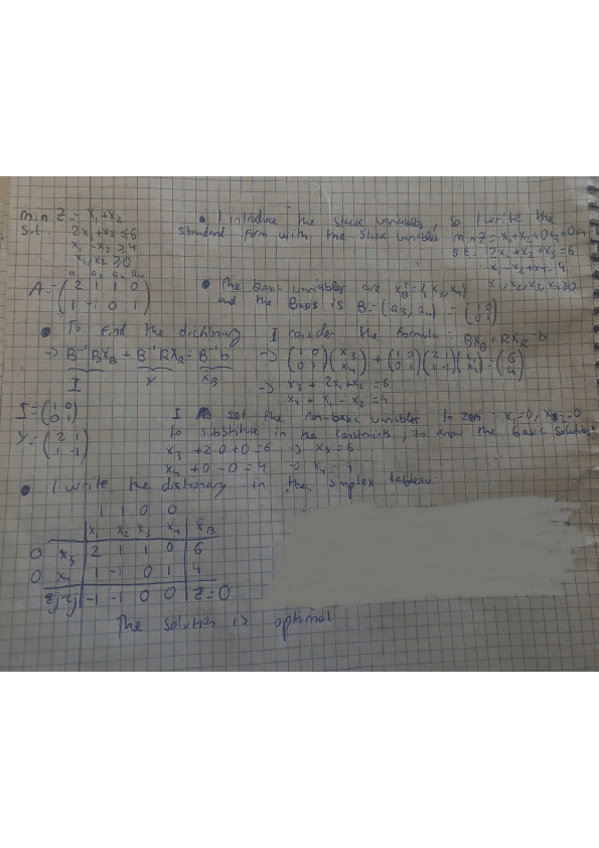 min Z = x₁+x₂
s.t. 2x₁+x₂ ≤ 6
x₁ - x₂ ≥ 4
x₁, x₂ ≥ 0
• I introduce the slack variables, so I write the
standard form with the slack variables min Z = x₁+x₂+0x₃+0x₄
s.t. 2x₁+x₂+x₃=6
x₁-x₂+x₄=4
x₁,x₂,x₃,x₄≥0
a₁ a₂ a₃ a₄
A = (2 1 1 0
1 -1 0 1)
• The basic variables are x_B^T = (x₃, x₄)
and the Basis is B = (a₃, a₄) = (1 0
0 1)
• To find the dictionary I consider the formula: BX_B + RX_R = b
→ B⁻¹BX_B + B⁻¹RX_R = B⁻¹b
I Y X_B
→ (1 0 (x₃ + (1 0 (2 1 (x₁ = (6
0 1) x₄) 0 1) 1 -1) x₂) 4)
→ x₃ + 2x₁+x₂ = 6
x₄ + x₁ - x₂ = 4
I = (1 0
0 1)
Y = (2 1
1 -1)
I set the non-basic variables to zero x₁=0, x₂=0
to substitute in the constraints, to know the basic solution:
x₃ + 2·0 + 0 = 6 → x₃ = 6
x₄ + 0 - 0 = 4 → x₄ = 4
• I write the dictionary in the simplex tableau:
1 1 0 0
x₁ x₂ x₃ x₄ X_B
0 x₃ 2 1 1 0 6
0 x₄ 1 -1 0 1 4
zj-cj -1 -1 0 0 z=0
The solution is optimal